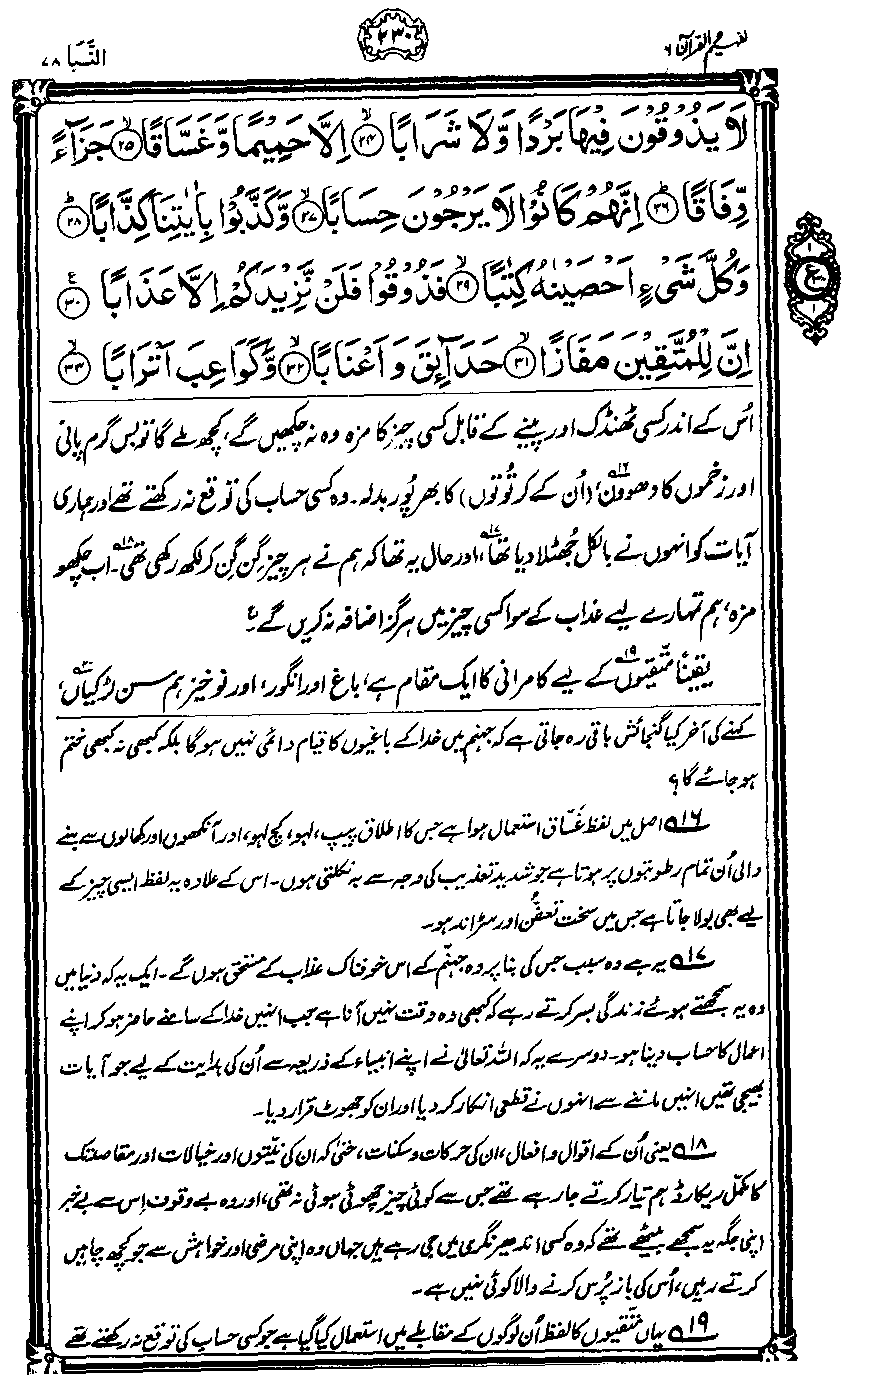 تفہیم القرآن ۶
۲۳۰
النَّبَا ۷۸
لَا يَذُوْقُوْنَ فِيْهَا بَرْدًا وَّلَا شَرَابًا ﴿۲۴﴾ اِلَّا حَمِيْمًا وَّغَسَّاقًا ﴿۲۵﴾ جَزَآءً
وِّفَاقًا ﴿۲۶﴾ اِنَّهُمْ كَانُوْا لَا يَرْجُوْنَ حِسَابًا ﴿۲۷﴾ وَّكَذَّبُوْا بِاٰيٰتِنَا كِذَّابًا ﴿۲۸﴾
وَكُلَّ شَيْءٍ اَحْصَيْنٰهُ كِتٰبًا ﴿۲۹﴾ فَذُوْقُوْا فَلَنْ نَّزِيْدَكُمْ اِلَّا عَذَابًا ﴿۳۰﴾
ع
اِنَّ لِلْمُتَّقِيْنَ مَفَازًا ﴿۳۱﴾ حَدَآئِقَ وَاَعْنَابًا ﴿۳۲﴾ وَّكَوَاعِبَ اَتْرَابًا ﴿۳۳﴾
اُس کے اندر کسی ٹھنڈک اور پینے کے قابل کسی چیز کا مزہ وہ نہ چکھیں گے، کچھ ملے گا تو بس گرم پانی
اور زخموں کا دھوون،۱۶ (اُن کے کرتُوتوں) کا بھرپُور بدلہ۔ وہ کسی حساب کی توقع نہ رکھتے تھے اور ہماری
آیات کو انہوں نے بالکل جُھٹلا دیا تھا،۱۷ اور حال یہ تھا کہ ہم نے ہر چیز گِن گِن کر لکھ رکھی تھی۔۱۸ اب چکھو
مزہ، ہم تمہارے لیے عذاب کے سوا کسی چیز میں ہرگز اضافہ نہ کریں گے۔ ع
یقیناً متّقیوں۱۹ کے لیے کامرانی کا ایک مقام ہے، باغ اور انگور، اور نوخیز ہم سن لڑکیاں،۲۰
کہنے کی آخر کیا گنجائش باقی رہ جاتی ہے کہ جہنم میں خدا کے باغیوں کا قیام دائمی نہیں ہوگا بلکہ کبھی نہ کبھی ختم
ہو جائے گا؟
۱۶ اصل میں لفظ غَسّاق استعمال ہوا ہے جس کا اطلاق پیپ، لہو، کچ لہو، اور آنکھوں اور کھالوں سے بہنے
والی اُن تمام رطوبتوں پر ہوتا ہے جو شدید تعذیب کی وجہ سے بہ نکلتی ہوں۔ اس کے علاوہ یہ لفظ ایسی چیز کے
لیے بھی بولا جاتا ہے جس میں سخت تعفّن اور سڑاند ہو۔
۱۷ یہ ہے وہ سبب جس کی بنا پر وہ جہنّم کے اس خوفناک عذاب کے مستحق ہوں گے۔ ایک یہ کہ دنیا میں
وہ یہ سمجھتے ہوئے زندگی بسر کرتے رہے کہ کبھی وہ وقت نہیں آنا ہے جب انہیں خدا کے سامنے حاضر ہو کر اپنے
اعمال کا حساب دینا ہو۔ دوسرے یہ کہ اللہ تعالیٰ نے اپنے انبیاء کے ذریعہ سے اُن کی ہدایت کے لیے جو آیات
بھیجی تھیں انہیں ماننے سے انہوں نے قطعی انکار کر دیا اور ان کو جھوٹ قرار دیا۔
۱۸ یعنی اُن کے اقوال و افعال، ان کی حرکات و سکنات، حتیٰ کہ ان کی نیّتوں اور خیالات اور مقاصد تک
کا مکمّل ریکارڈ ہم تیار کرتے جا رہے تھے جس سے کوئی چیز چھوٹی ہوئی نہ تھی، اور وہ بے وقوف اِس سے بے خبر
اپنی جگہ یہ سمجھے بیٹھے تھے کہ وہ کسی اندھیر نگری میں جی رہے ہیں جہاں وہ اپنی مرضی اور خواہش سے جو کچھ چاہیں
کرتے رہیں، اُس کی باز پُرس کرنے والا کوئی نہیں ہے۔
۱۹ یہاں متّقیوں کا لفظ اُن لوگوں کے مقابلے میں استعمال کیا گیا ہے جو کسی حساب کی توقع نہ رکھتے تھے